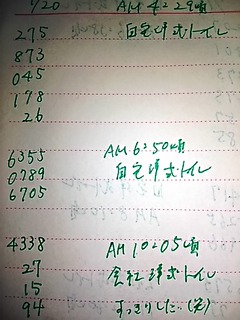 720 AM 4:29頃
275 自宅洋式トイレ
873
045
178
26
6355 AM 6:50頃
0789 自宅洋式トイレ
6705
4338 AM 10:05頃
27 会社洋式トイレ
15
94 すっきりした(笑)